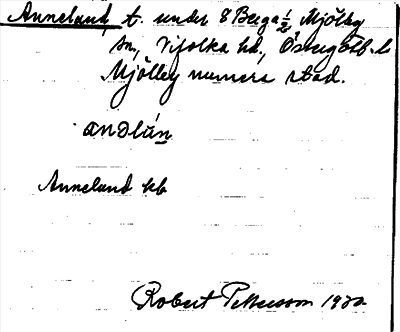 Anneland, t. under 8 Berga ½ Mjölby
sn, Vifolka hd, Östergötl. l
Mjölby numera stad.
andlún
Anneland kb
Robert Pettersson 1922